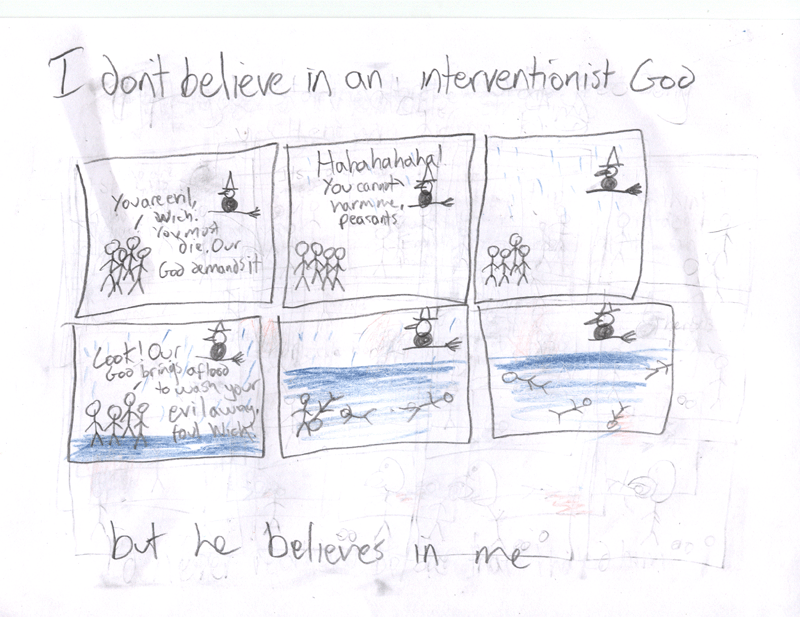 I don't believe in an interventionist God
You are evil,
Wich.
You must
die. Our
God demands it
Hahahahaha!
You cannot
harm me,
peasants
Look! Our
God brings a flood
to wash your
evil away,
foul Wich!
but he believes in me